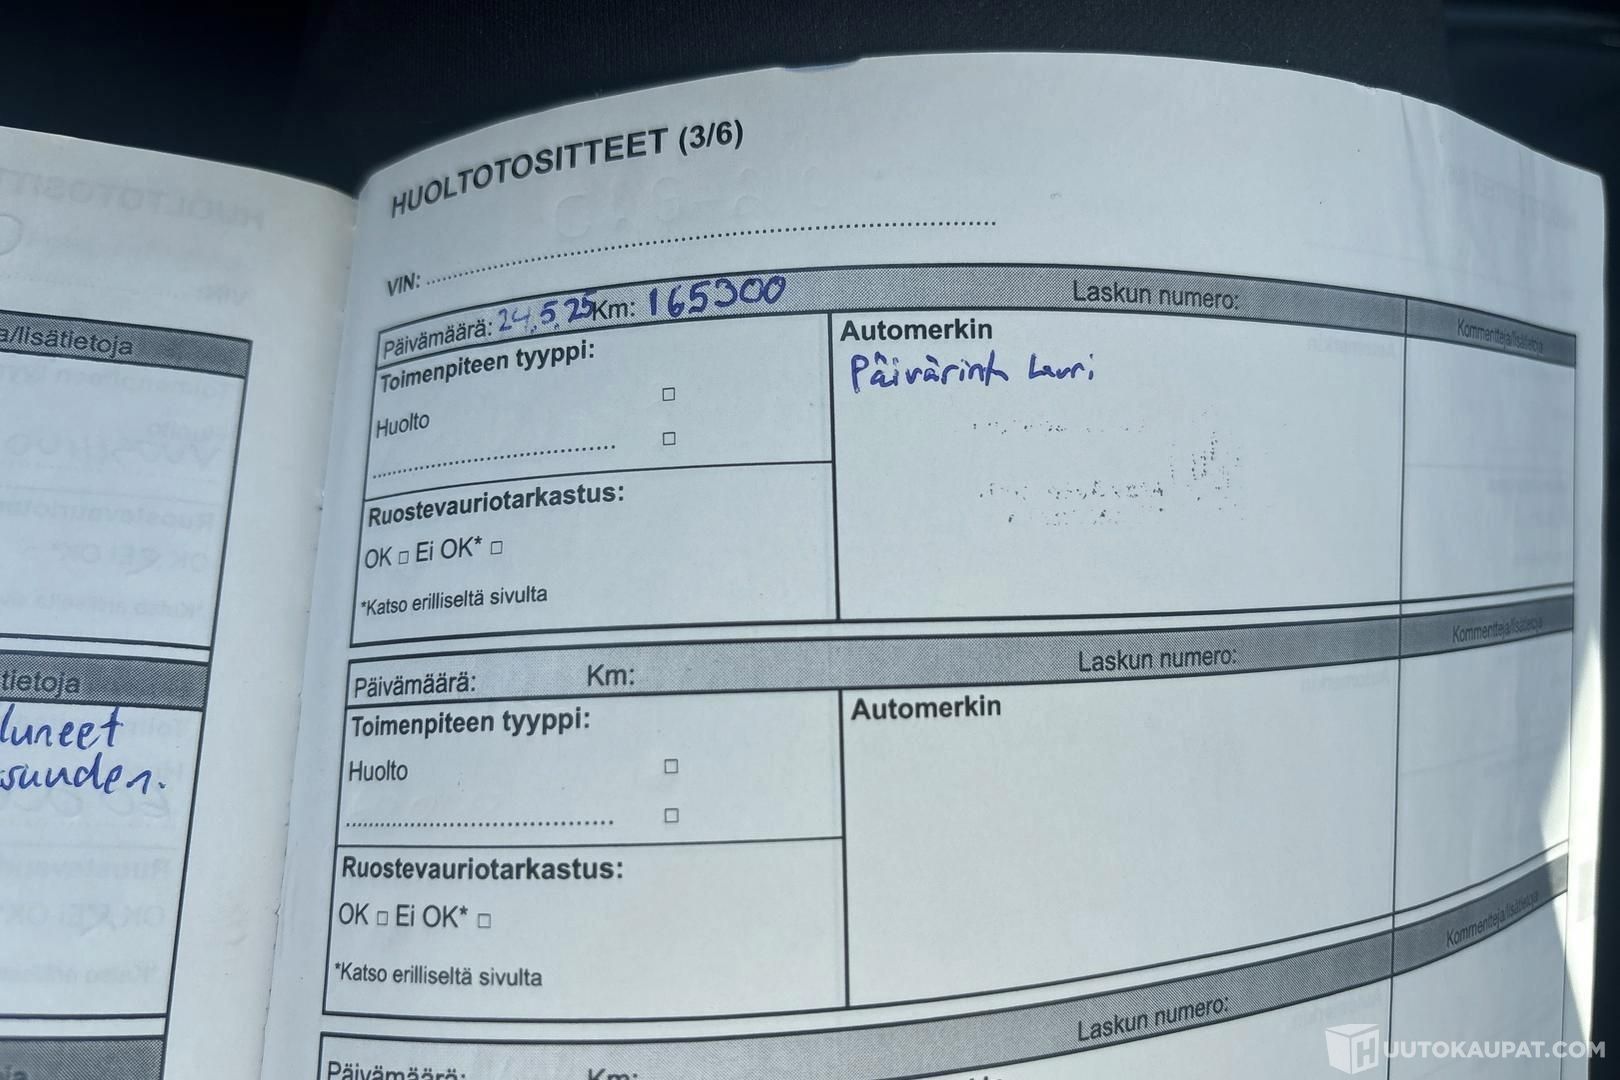 HUOLTOTOSITTEET (3/6)
VIN:
Päivämäärä: 24.5.25 Km: 165300 Laskun numero: Kommentteja/lisätietoja
Toimenpiteen tyyppi:
Huolto
Ruostevauriotarkastus:
OK Ei OK*
*Katso erilliseltä sivulta
Automerkin
Päivärinta Lauri
Päivämäärä: Km: Laskun numero: Kommentteja/lisätietoja
Toimenpiteen tyyppi:
Huolto
Ruostevauriotarkastus:
OK Ei OK*
*Katso erilliseltä sivulta
Automerkin
Päivämäärä: Km: Laskun numero: Kommentteja/lisätietoja
a/lisätietoja
tietoja
luneet
suuden.
HUUTOKAUPAT.COM